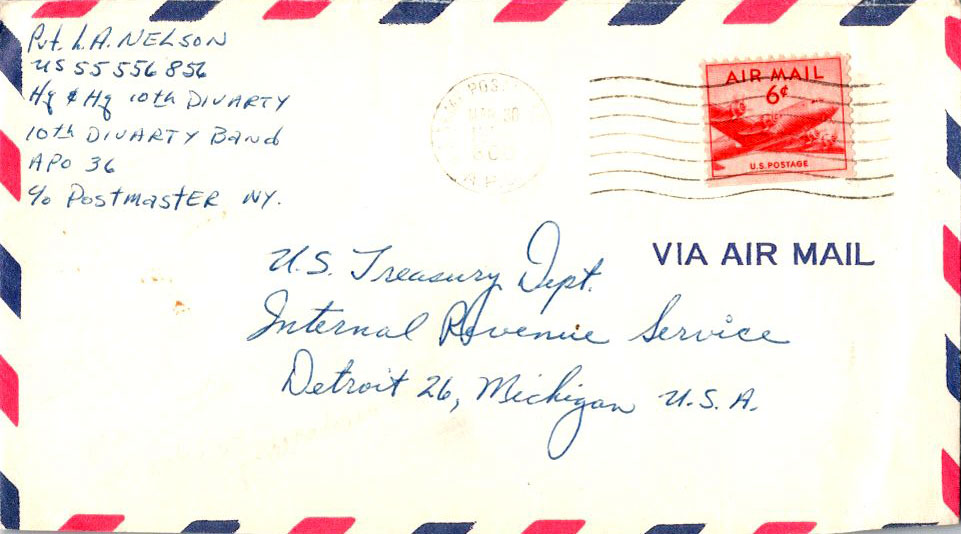 Pvt. L.A. NELSON
US 55 556 856
Hq & Hq 10th DIVARTY
10th DIVARTY Band
APO 36
c/o PostmastER NY.
POST
AIR MAIL
6¢
U.S. POSTAGE
VIA AIR MAIL
U.S. Treasury Dept.
Internal Revenue Service
Detroit 26, Michigan U.S.A.